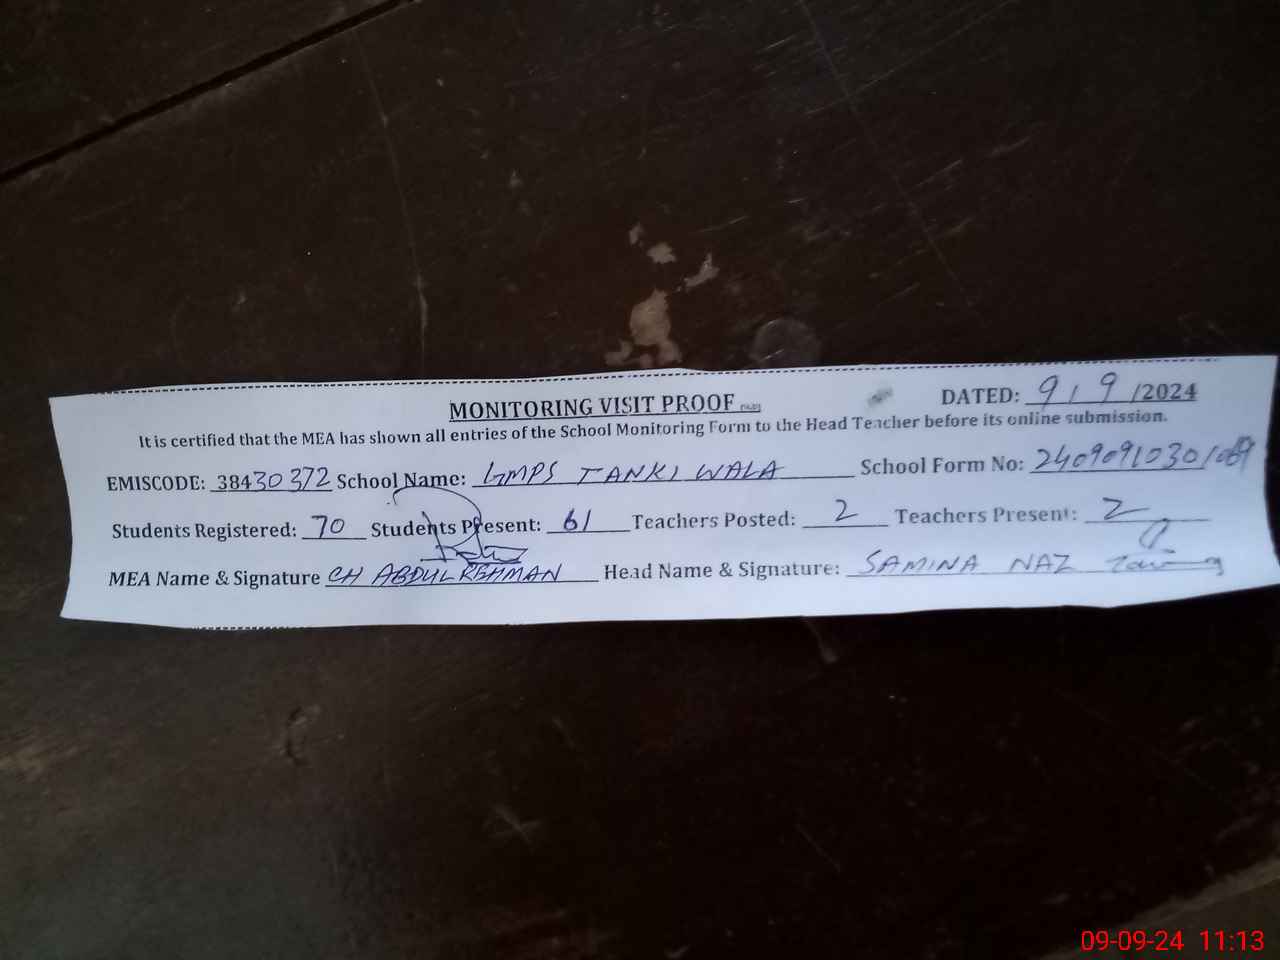 MONITORING VISIT PROOF
DATED: 9/9/2024
It is certified that the MEA has shown all entries of the School Monitoring Form to the Head Teacher before its online submission.
EMISCODE: 38430372 School Name: GMPS TANKI WALA School Form No:
Students Registered: 70 Students Present: 61 Teachers Posted: 2 Teachers Present: 2
MEA Name & Signature CH ABDUL REHMAN Head Name & Signature: SAMINA NAZ
09-09-24 11:13